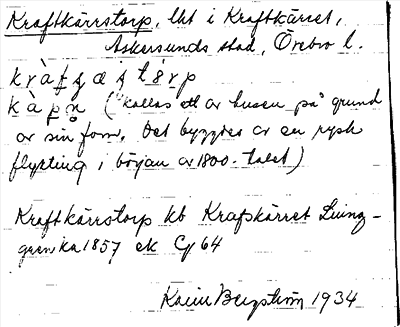 Kraftkärrstorp, lht i Kraftkärret,
Askersunds stad, Örebro l.
("kallas ett av husen på grund
av sin form. Det byggdes av en rysk
flykting i början av 1800-talet)
Kraftkärrstorp kb Krafskärret Ljung-
gren ka 1857 ek Cf 64
Karin Bergström 1934